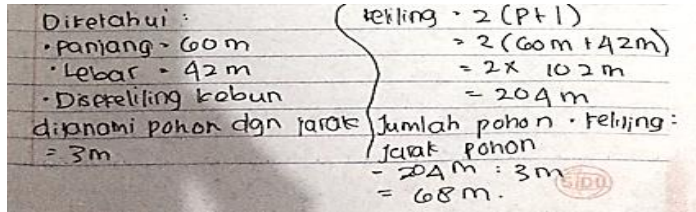 Diketahui :
• Panjang = 60 m
• Lebar = 42 m
• Disekeliling kebun
ditanami pohon dgn jarak
= 3m
keliling = 2 (P+l)
= 2 (60m + 42m)
= 2 x 102 m
= 204 m
Jumlah pohon = keliling :
jarak pohon
= 204 m : 3 m
= 68 m.
SIDU